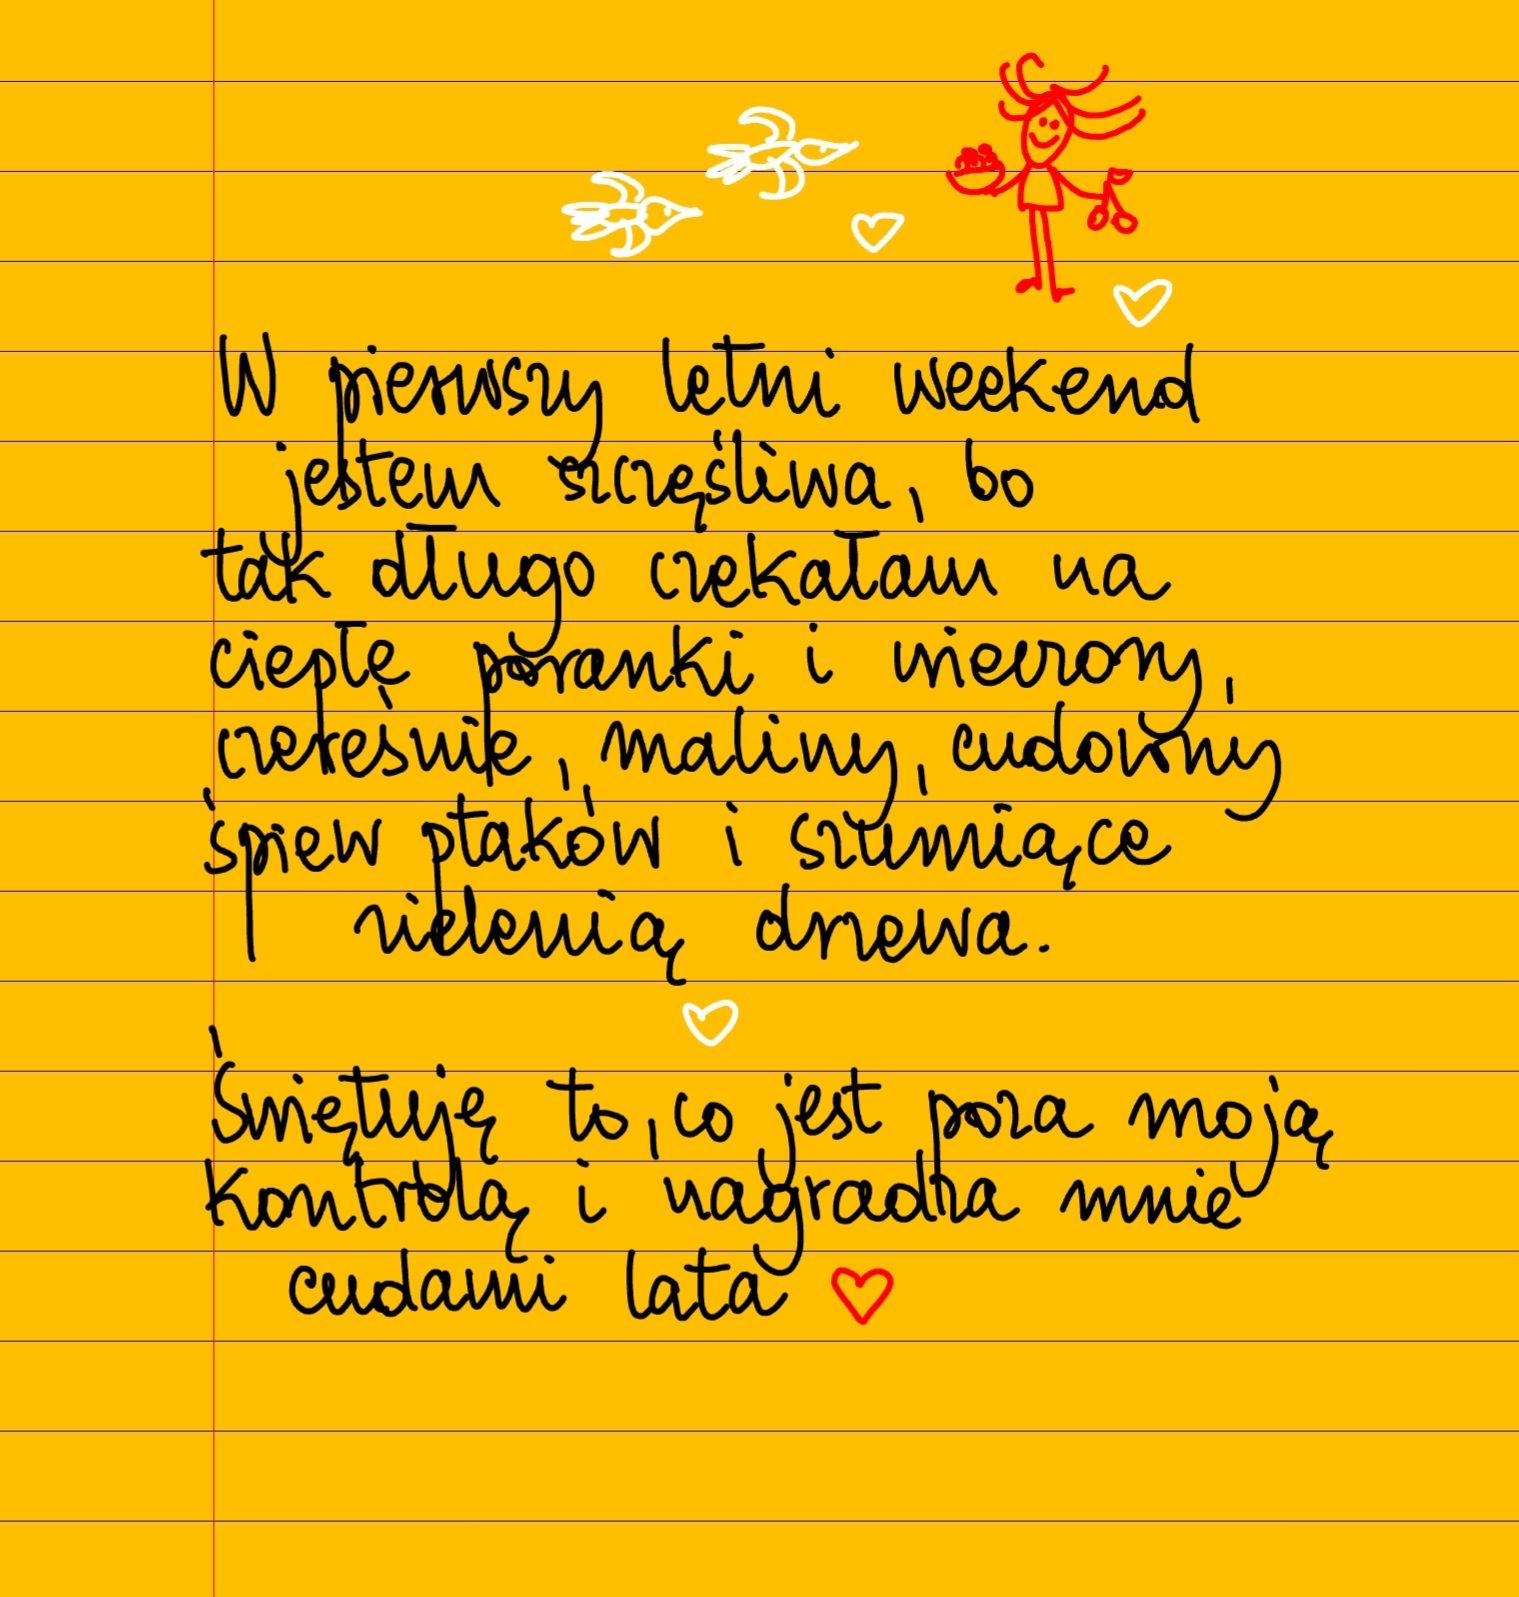 W pierwszy letni weekend
jestem szczęśliwa, bo
tak długo czekałam na
ciepłę poranki i wieczory,
czereśnie, maliny, cudowny
śpiew ptaków i szumiące
zielenią drzewa.
Świętuję to, co jest poza moją
kontrolą i nagradza mnie
cudami lata